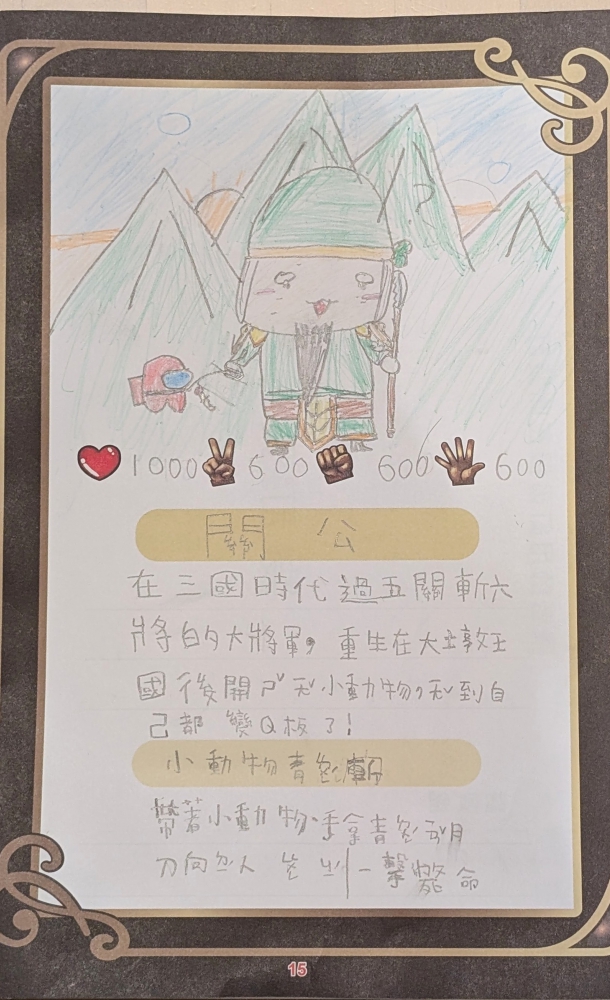 1000 600 600 600
關公
在三國時代過五關斬六
將的大將軍，重生在大墩王
國後開ㄕˇ和小動物，和到自
己都變Q板了！
小動物青龍
帶著小動物，手拿青
刀向敵人 一擊斃命
15